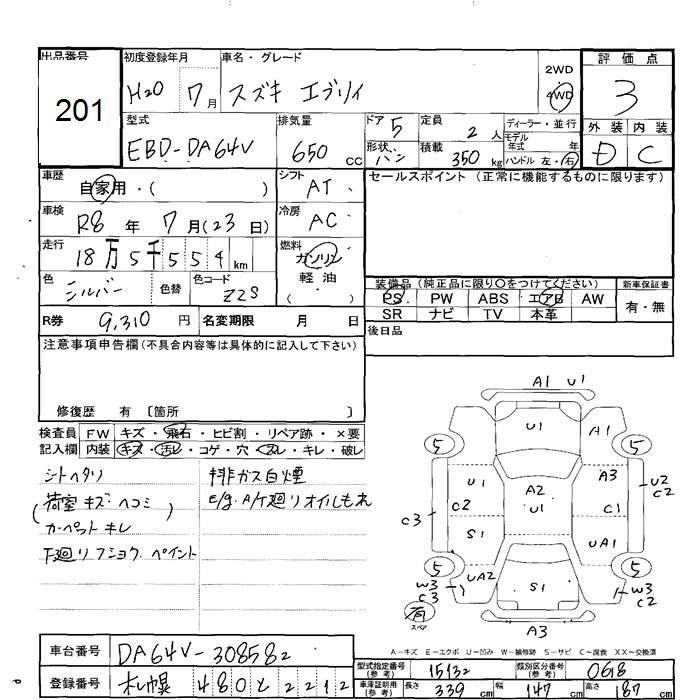 出品番号
201
初度登録年月
H20 7月
車名・グレード
スズキ エブリイ
2WD
4WD
評価点
3
外装 内装
D C
型式
EBD-DA64V
排気量
650 cc
ドア 5
形状 バン
定員 2 人
積載 350 kg
ディーラー・並行
モデル年式 年
ハンドル 左・右
車歴
自家用・( )
シフト
AT
セールスポイント (正常に機能するものに限ります)
車検
R8 年 7 月 (23 日)
冷房
AC
走行
18万5千554 km
燃料
ガソリン
軽油
( ・ )
色
シルバー
色替
色コード
Z2S
装備品 (純正品に限り○をつけてください)
新車保証書
PS PW ABS エアB AW
SR ナビ TV 本革
有・無
R券 9,310 円
名変期限 月 日
後日品
注意事項申告欄 (不具合内容等は具体的に記入して下さい)
修復歴 有 〔箇所 〕
検査員記入欄
FW キズ・飛石・ヒビ割・リペア跡・×要
内装 キズ・汚レ・コゲ・穴・スレ・キレ・破レ
シートヘタリ
(荷室キズヘコミ)
カーペットキレ
下廻リフショク、ペイント
排ガス白煙
E/g、A/T廻リオイルもれ
A1 U1
U1
A1
5 5
U1
A3
U2
C2
A2
U1
C2
C1
C3
S1
UA1
5 5
UA2
S1
W3
C3
W3
C2
有
スペア
A3
A−キズ E−エクボ U−凹み W−補修跡 S−サビ C−腐食 XX−交換済
車台番号
DA64V-308582
登録番号
札幌 480 と 2212
型式指定番号 (参考)
15132
類別区分番号 (参考)
0618
車庫証明用 (参考)
長さ 339 cm
幅 147 cm
高さ 187 cm